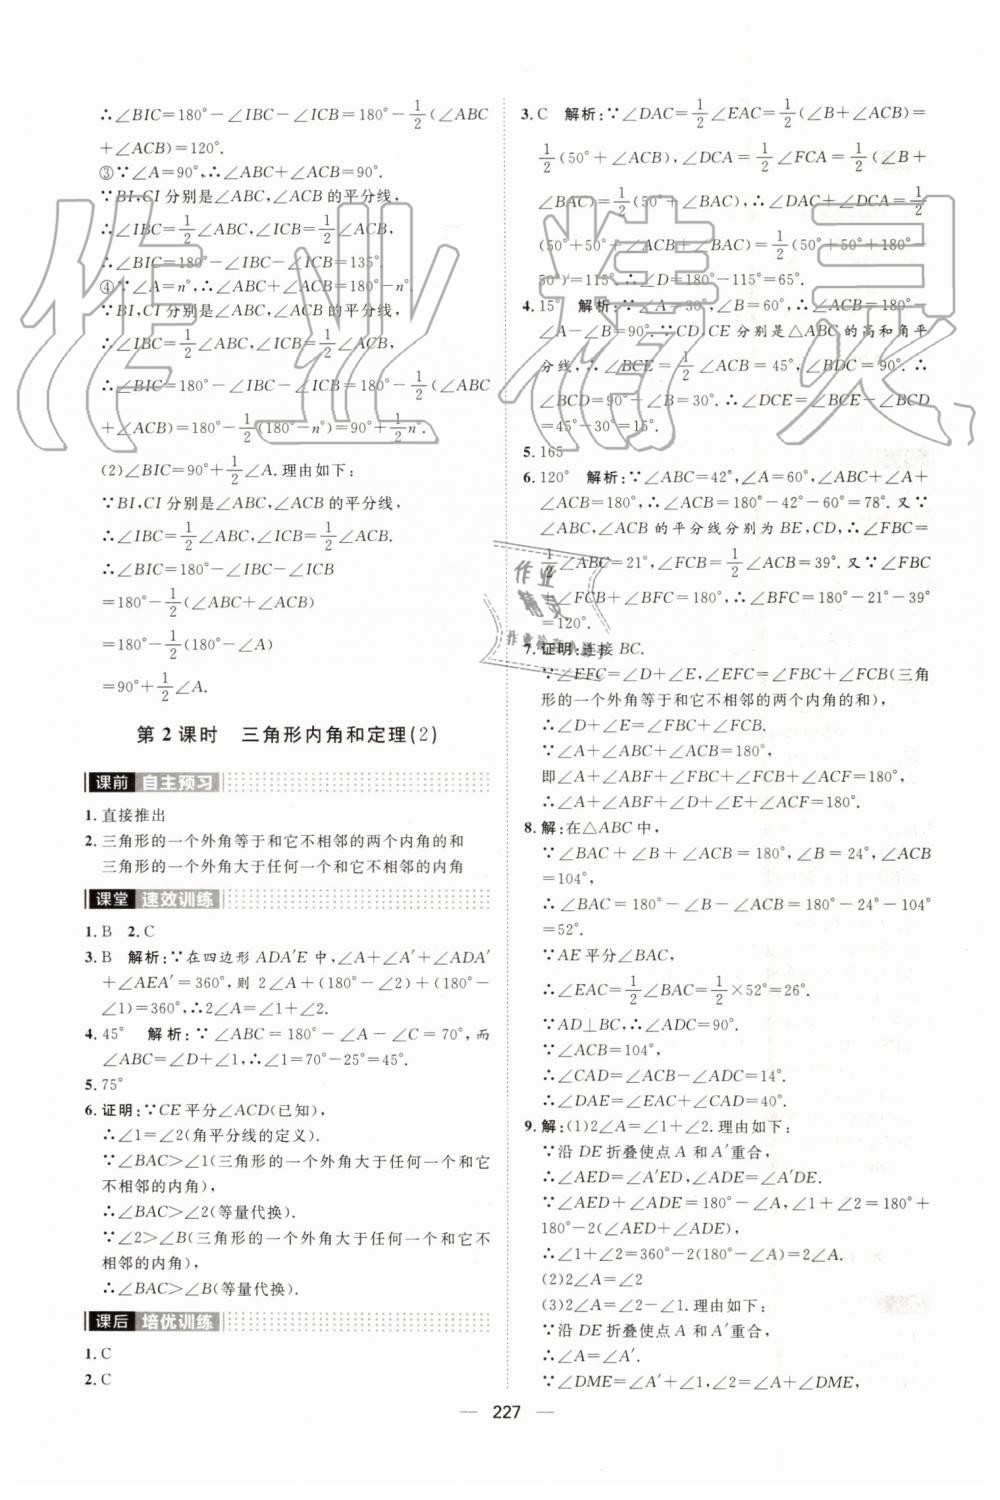 ∴∠BIC=180°-∠IBC-∠ICB=180°-1/2(∠ABC
+∠ACB)=120°.
③∵∠A=90°,∴∠ABC+∠ACB=90°.
∵BI,CI分别是∠ABC,∠ACB的平分线,
∴∠IBC=1/2∠ABC,∠ICB=1/2∠ACB,
∴∠BIC=180°-∠IBC-∠ICB=135°.
④∵∠A=n°,∴∠ABC+∠ACB=180°-n°.
∵BI,CI分别是∠ABC,∠ACB的平分线,
∴∠IBC=1/2∠ABC,∠ICB=1/2∠ACB,
∴∠BIC=180°-∠IBC-∠ICB=180°-1/2(∠ABC
+∠ACB)=180°-1/2(180°-n°)=90°+1/2n°.
(2)∠BIC=90°+1/2∠A.理由如下:
∵BI,CI分别是∠ABC,∠ACB的平分线,
∴∠IBC=1/2∠ABC,∠ICB=1/2∠ACB.
∴∠BIC=180°-∠IBC-∠ICB
=180°-1/2(∠ABC+∠ACB)
=180°-1/2(180°-∠A)
=90°+1/2∠A.
第2课时 三角形内角和定理(2)
课前 自主预习
1.直接推出
2.三角形的一个外角等于和它不相邻的两个内角的和
三角形的一个外角大于任何一个和它不相邻的内角
课堂 速效训练
1.B 2.C
3.B 解析:∵在四边形ADA′E中,∠A+∠A′+∠ADA′
+∠AEA′=360°,则2∠A+(180°-∠2)+(180°-
∠1)=360°,∴2∠A=∠1+∠2.
4.45° 解析:∵∠ABC=180°-∠A-∠C=70°,而
∠ABC=∠D+∠1,∴∠1=70°-25°=45°.
5.75°
6.证明:∵CE平分∠ACD(已知),
∴∠1=∠2(角平分线的定义).
∵∠BAC>∠1(三角形的一个外角大于任何一个和它
不相邻的内角),
∴∠BAC>∠2(等量代换).
∵∠2>∠B(三角形的一个外角大于任何一个和它不
相邻的内角),
∴∠BAC>∠B(等量代换).
课后 培优训练
1.C
2.C
3.C 解析:∵∠DAC=1/2∠EAC=1/2(∠B+∠ACB)=
1/2(50°+∠ACB),∠DCA=1/2∠FCA=1/2(∠B+
∠BAC)=1/2(50°+∠BAC),∴∠DAC+∠DCA=1/2
(50°+50°+∠ACB+∠BAC)=1/2(50°+50°+180°-
50°)=115°,∴∠D=180°-115°=65°.
4.15° 解析:∵∠A=30°,∠B=60°,∴∠ACB=180°-
∠A-∠B=90°.∵CD,CE分别是△ABC的高和角平
分线,∴∠BCE=1/2∠ACB=45°,∠BDC=90°.∴
∠BCD=90°-∠B=30°.∴∠DCE=∠BCE-∠BCD
=45°-30°=15°.
5.165
6.120° 解析:∵∠ABC=42°,∠A=60°,∠ABC+∠A+
∠ACB=180°,∴∠ACB=180°-42°-60°=78°.又∵
∠ABC,∠ACB的平分线分别为BE,CD,∴∠FBC=
1/2∠ABC=21°,∠FCB=1/2∠ACB=39°.又∵∠FBC
+∠FCB+∠BFC=180°,∴∠BFC=180°-21°-39°
=120°.
7.证明:连接BC.
∵∠EFC=∠D+∠E,∠EFC=∠FBC+∠FCB(三角
形的一个外角等于和它不相邻的两个内角的和),
∴∠D+∠E=∠FBC+∠FCB.
∵∠A+∠ABC+∠ACB=180°,
即∠A+∠ABF+∠FBC+∠FCB+∠ACF=180°,
∴∠A+∠ABF+∠D+∠E+∠ACF=180°.
8.解:在△ABC中,
∵∠BAC+∠B+∠ACB=180°,∠B=24°,∠ACB
=104°,
∴∠BAC=180°-∠B-∠ACB=180°-24°-104°
=52°.
∵AE平分∠BAC,
∴∠EAC=1/2∠BAC=1/2×52°=26°.
∵AD⊥BC,∴∠ADC=90°.
∵∠ACB=104°,
∴∠CAD=∠ACB-∠ADC=14°.
∴∠DAE=∠EAC+∠CAD=40°.
9.解:(1)2∠A=∠1+∠2.理由如下:
∵沿DE折叠使点A和A′重合,
∴∠AED=∠A′ED,∠ADE=∠A′DE.
∵∠AED+∠ADE=180°-∠A,∠1+∠2=180°+
180°-2(∠AED+∠ADE),
∴∠1+∠2=360°-2(180°-∠A)=2∠A.
(2)2∠A=∠2
(3)2∠A=∠2-∠1.理由如下:
∵沿DE折叠使点A和A′重合,
∴∠A=∠A′.
∵∠DME=∠A′+∠1,∠2=∠A+∠DME,
— 227 —
作业精灵
作业精灵